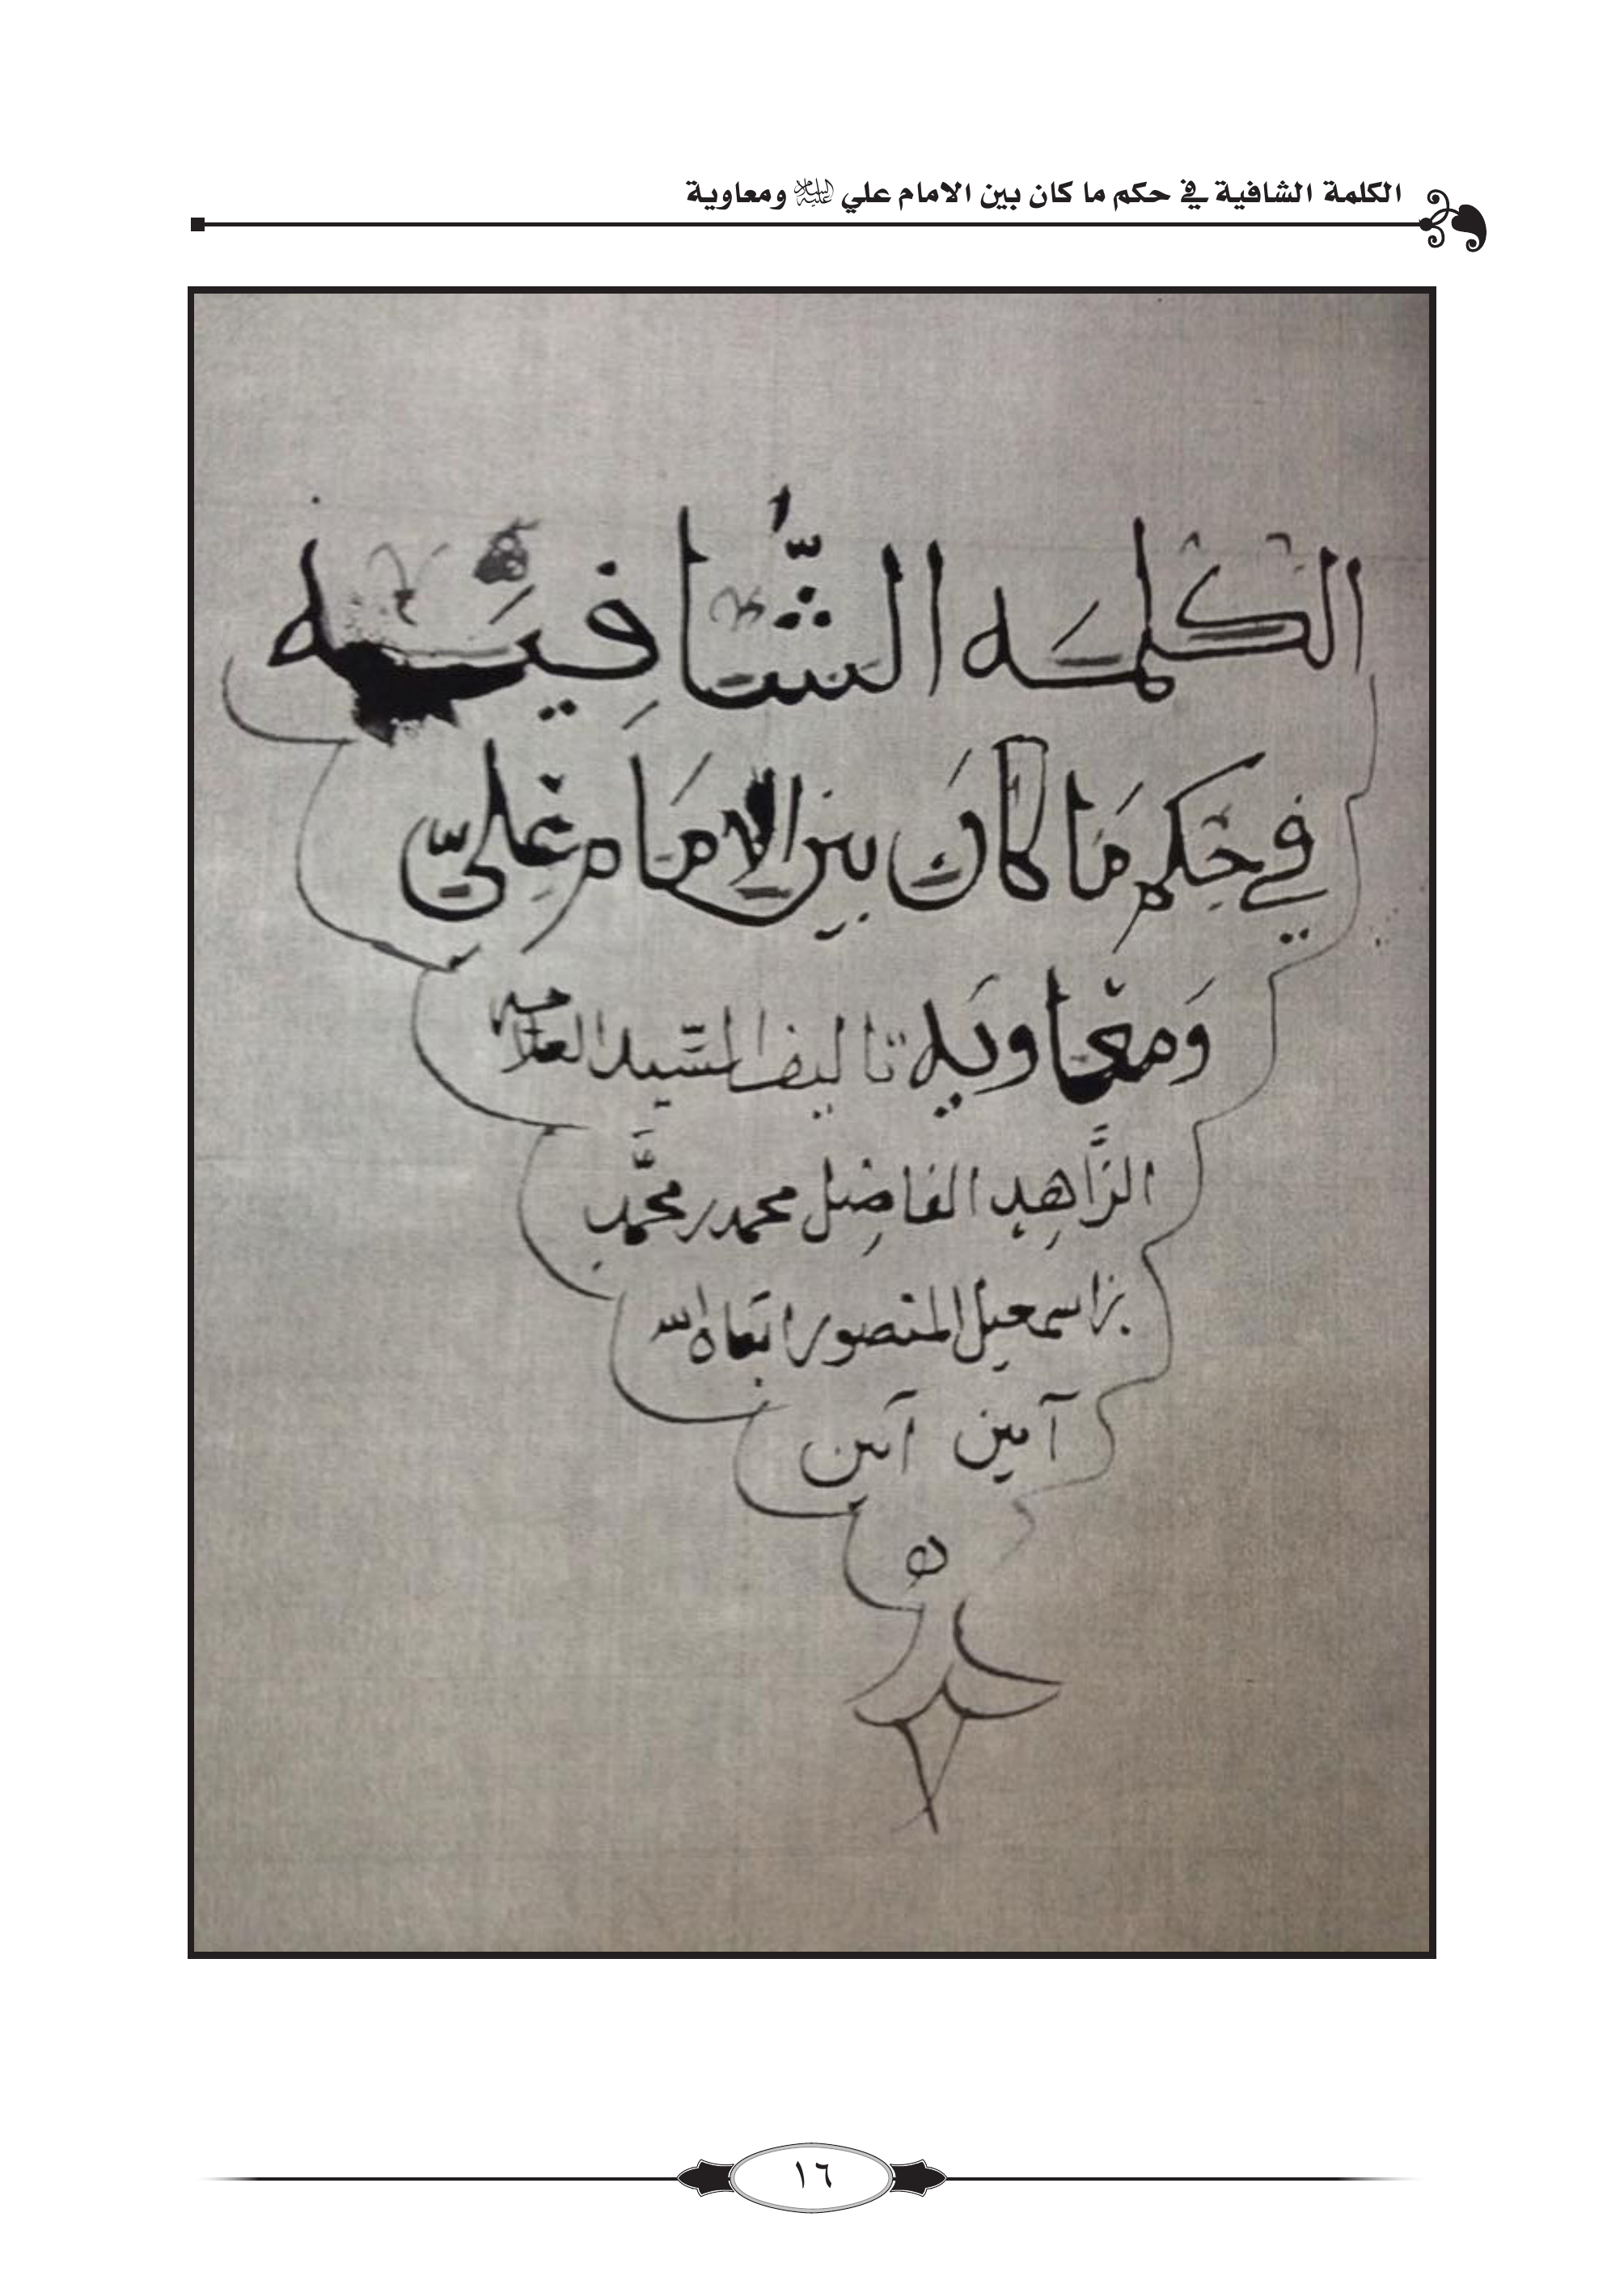 الكلمة الشافية في حكم ما كان بين الامام علي عليه السلام ومعاوية
الكلمه الشَّافِيَه
في حكم مَا كَانَ بين الامَام عَلِيّ
وَمعَاويَه تاليف السَّيد العلامه
الزَّاهِد الفاضِل محمد بن محمَّد
بن اسمعيل المنصور ابقاه الله
آمين آمين
ه
١٦